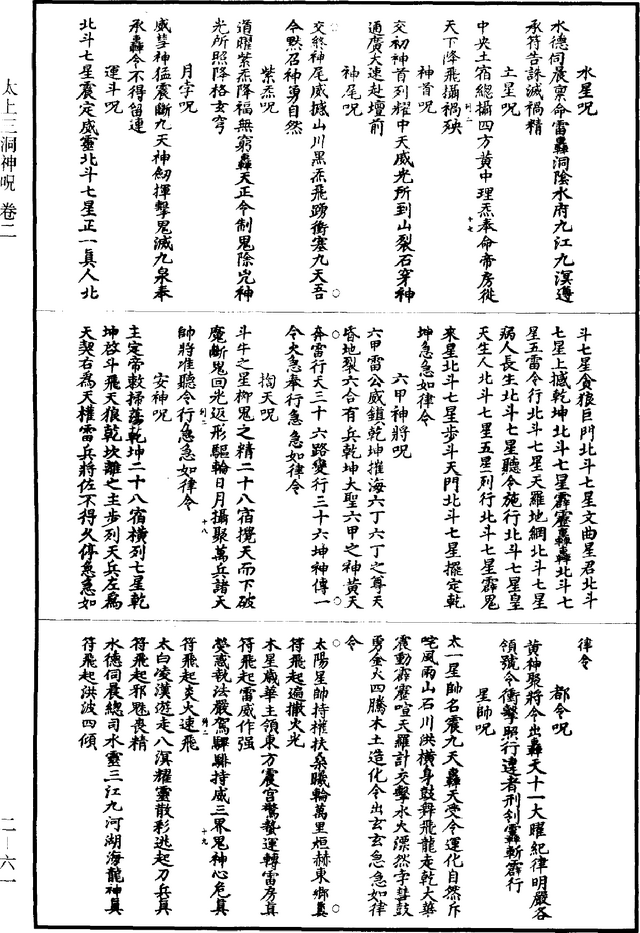 水星呪
水德伺晨禀命雷轟洞陰水府九江九溟遵
承符告誅滅禍精
土星呪
中央土宿總攝四方黃中理炁奉命帝房從
天下降飛攝禍殃
神首呪
交初神首列耀中天威光所到山裂石穿神
通廣大速赴壇前
神尾呪
交終神尾威撼山川黑炁飛踴衝塞九天吾
今默召神勇自然
紫炁呪
道曜紫炁降福無窮轟天正令制鬼除兇神
光所照降格玄穹
月孛呪
威彗神猛震斷九天神劒揮擊鬼滅九泉奉
承轟令不得留連
運斗呪
北斗七星震定威靈北斗七星正一真人北
斗七星貪狼巨門北斗七星文曲星君北斗
七星上撼乾坤北斗七星霹靂轟轟北斗七
星五雷令行北斗七星天羅地網北斗七星
病人長生北斗七星聽令施行北斗七星皇
天生人北斗七星五星列行北斗七星霹鬼
來星北斗七星步斗天門北斗七星擺定乾
坤急急如律令
六甲神將呪
六甲雷公威鎮乾坤摧海六丁六丁之尊天
昏地裂六合有兵乾坤大聖六甲之神黃天
奔雷行天三十六路變行三十六坤神傳一
令火急奉行急急如律令
掏天呪
斗牛之星柳鬼之精二十八宿攪天而下破
魔斷鬼回光返形驅輪日月攝聚萬兵諸天
帥將准聽令行急急如律令
安神呪
主定帝敕掃蕩乾坤二十八宿橫列七星乾
坤啓斗飛天狼乾坎離之主步列天兵左爲
天契右爲天權雷兵將佐不得久停急急如
律令
都令呪
黃神聚將令出轟天十一大曜紀律明嚴各
領號令衝擊照行違者刑剉轟斬霹行
星帥呪
太一星帥名震九天轟天受令運化自然斥
咤風雨山石川洪橫身鼓舞飛龍走乾大藥
震動霹靂喧天羅計交擊水火漂然孛彗鼓
勇金火四騰木土造化令出玄玄急急如律
令
太陽星帥持權扶桑曦輪萬里烜赫東鄉真
符飛起遍撒火光
木星歲華主領東方震宫驚蟄運轉雷房真
符飛起雷威作强
熒惑執法嚴駕驛騑持威三界鬼神心危真
符飛起炎火速飛
太白凌漢遊走八溟耀靈散彩逃起刀兵真
符飛起邪魅喪精
水德伺晨總司水靈三江九河湖海龍神真
符飛起洪波四傾
太上三洞神呪 卷二
二—六一